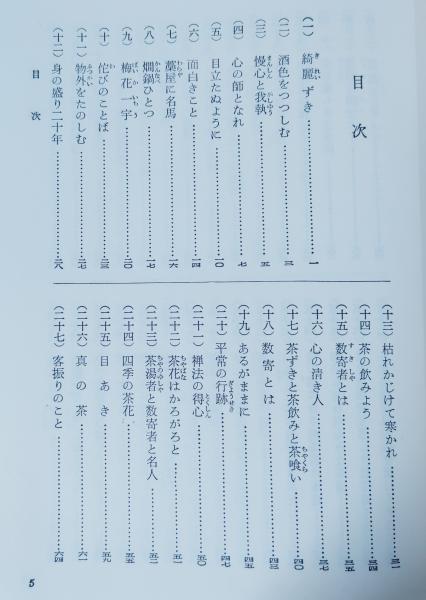 目次
(一) 綺麗ずき…………一
(二) 酒色をつつしむ…………三
(三) 慢心と我執…………五
(四) 心の師となれ…………七
(五) 目立たぬように…………一〇
(六) 面白きこと…………一四
(七) 藁屋に名馬…………一六
(八) 燗鍋ひとつ…………一七
(九) 梅花一字…………二〇
(十) 佗びのことば…………二三
(十一) 物外をたのしむ…………二七
(十二) 身の盛り二十年…………二八
(十三) 枯れかじけて寒かれ…………三一
(十四) 茶の飲みよう…………三四
(十五) 数寄者とは…………三五
(十六) 心の清き人…………三七
(十七) 茶ずきと茶飲みと茶喰い…………四〇
(十八) 数寄とは…………四三
(十九) あるがままに…………四五
(二十) 平常の行跡…………四七
(二十一) 禅法の得心…………五〇
(二十二) 茶花はかろがろと…………五一
(二十三) 茶湯者と数寄者と名人…………五二
(二十四) 四季の茶花…………五五
(二十五) 目あき…………五九
(二十六) 真の茶…………六一
(二十七) 客振りのこと…………六四
目次
5